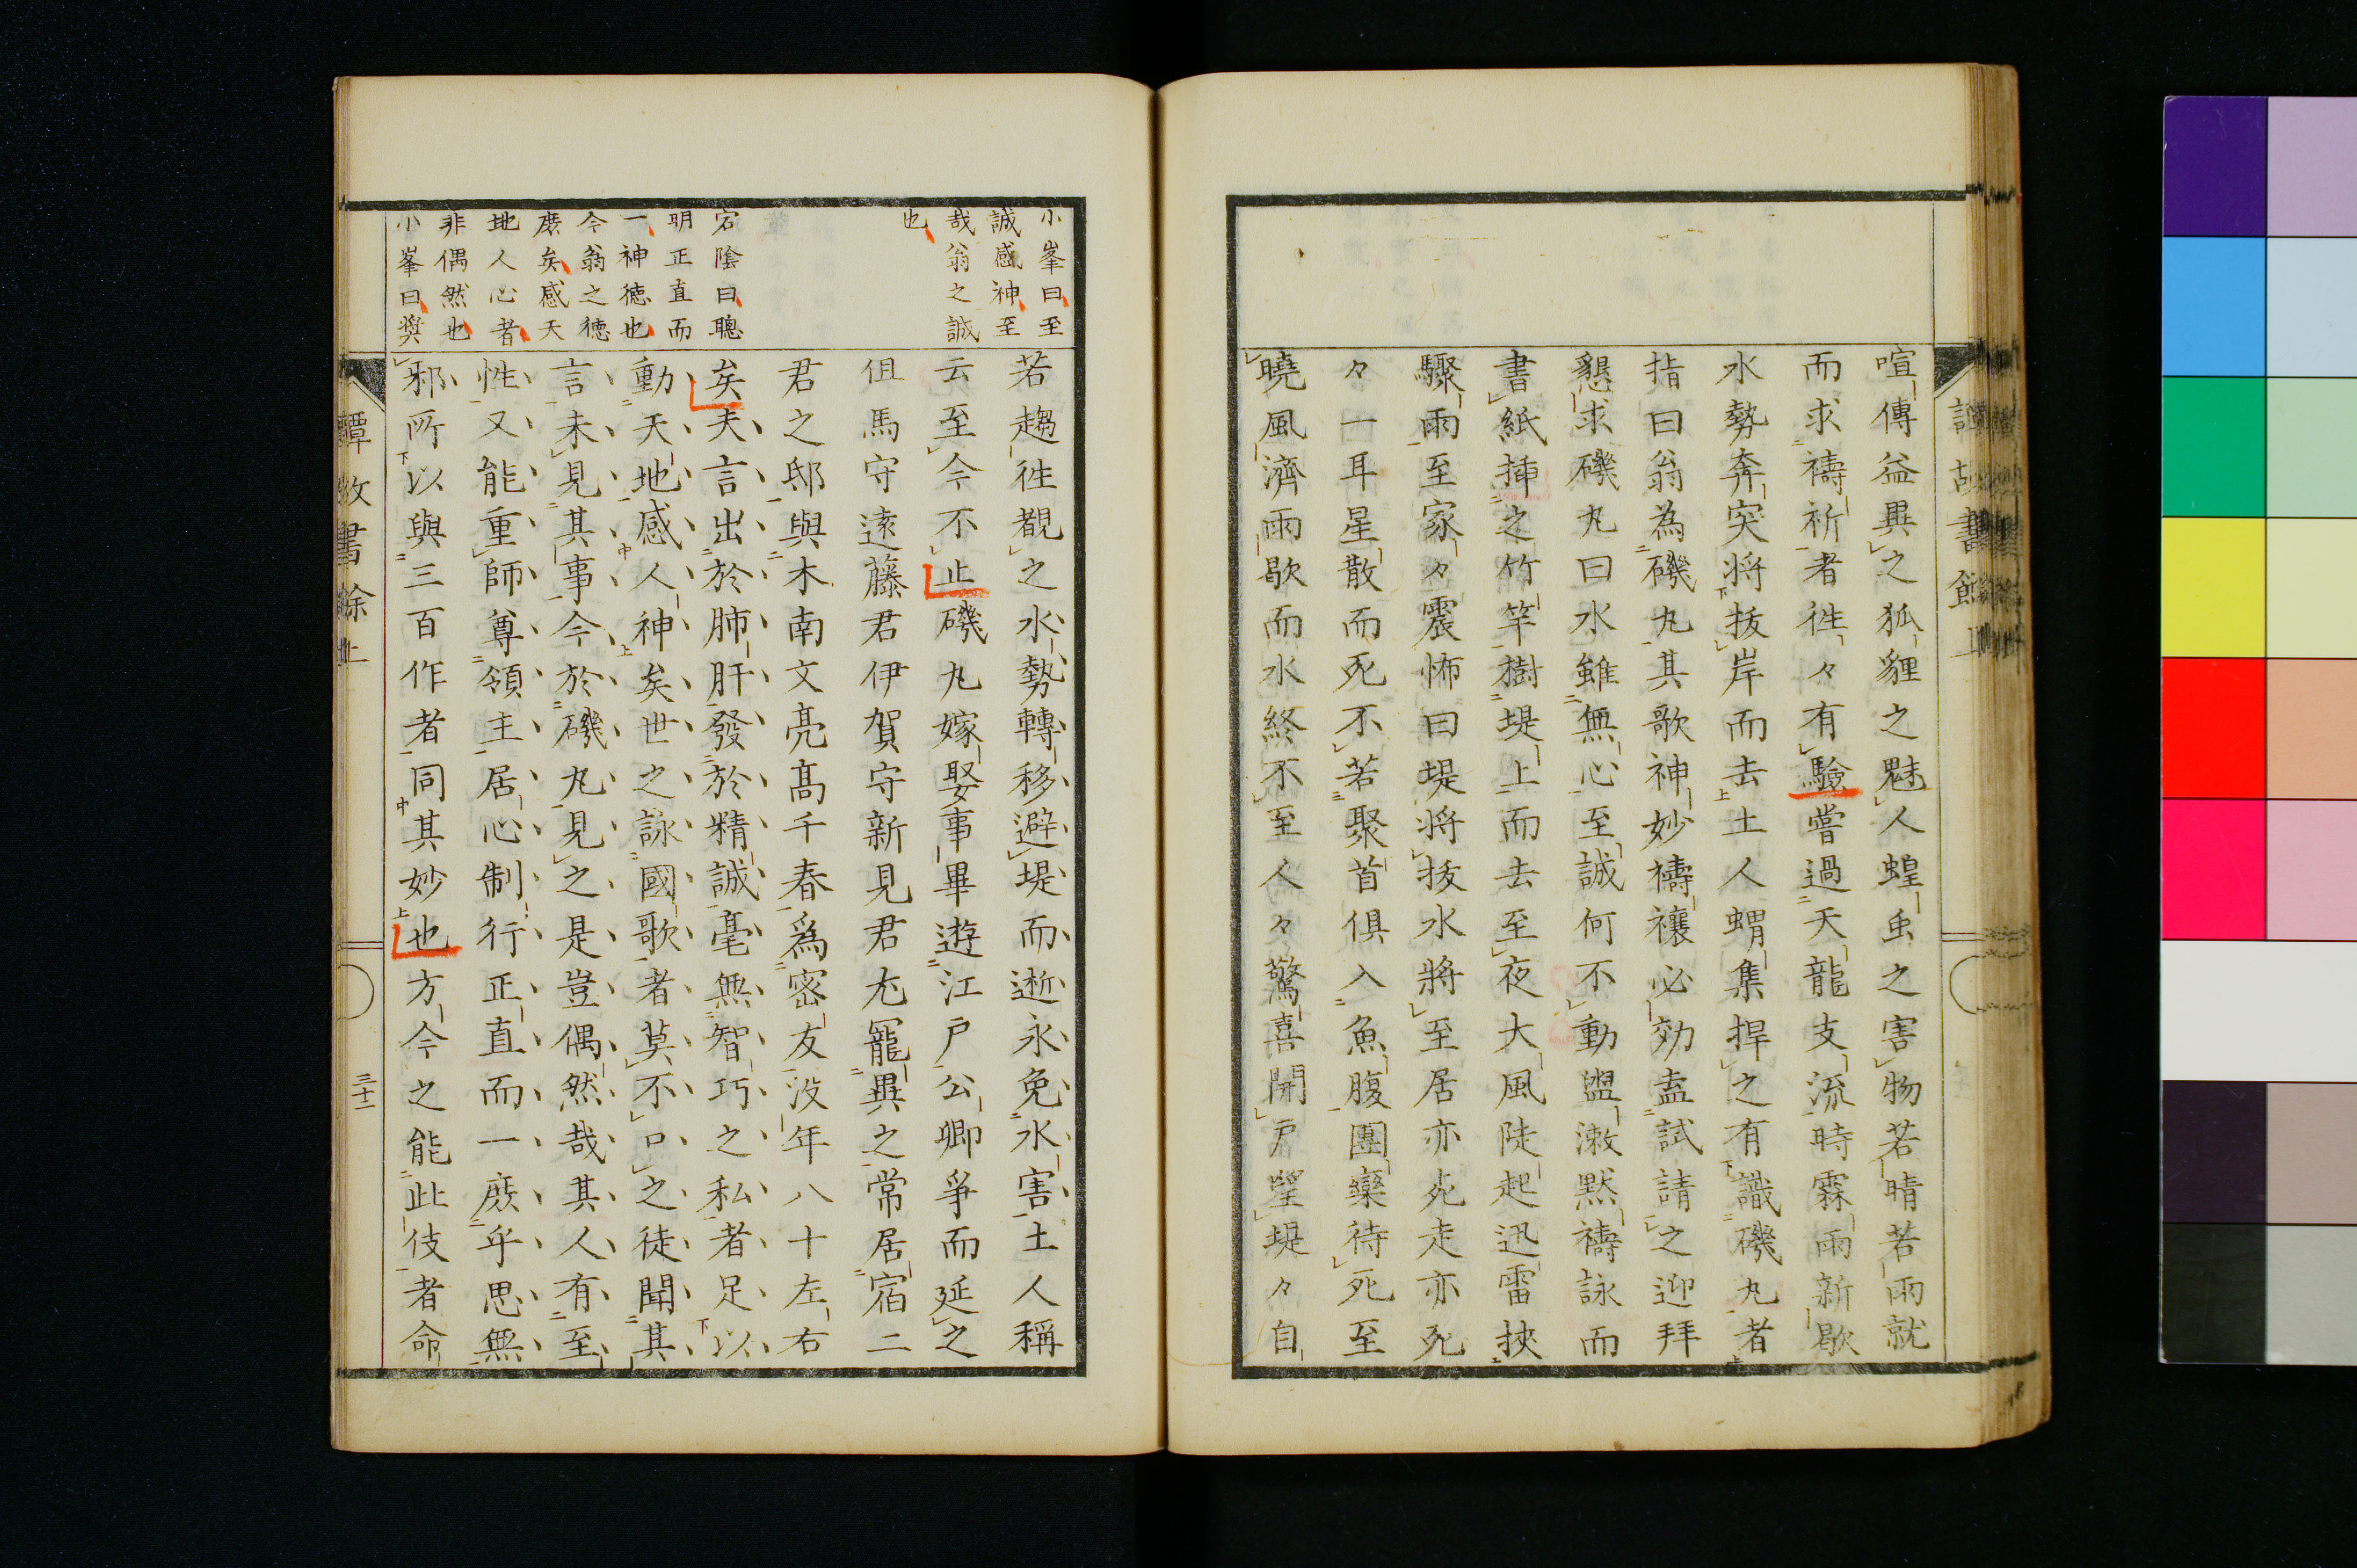 喧傳益異之狐貍之魅人蝗虫之害物若晴若雨就
而求禱祈者徃々有驗嘗過天龍支流時霖雨新歇
水勢奔突將拔岸而去土人蝟集捍之有識磯丸者
指曰翁為磯丸其歌神妙禱禳必効盍試請之迎拜
懇求磯丸曰水雖無心至誠何不動盥漱默禱詠而
書紙揷之竹竿樹堤上而去至夜大風陡起迅雷挾
驟雨至家々震怖曰堤將拔水將至居亦死走亦死
々一耳星散而死不若聚首俱入魚腹團欒待死至
曉風濟雨歇而水終不至人々驚喜開戶望堤々自
若趨徃覩之水勢轉移避堤而逝永免水害土人稱
云至今不止磯丸嫁娶事畢遊江戶公卿爭而延之
但馬守遠藤君伊賀守新見君尤寵異之常居宿二
君之邸與木南文亮髙千春爲密友没年八十左右
矣夫言出於肺肝發於精誠毫無智巧之私者足以
動天地感人神矣世之詠國歌者莫不口之徒聞其
言未見其事今於磯丸見之是豈偶然哉其人有至
性又能重師尊領主居心制行正直而一庶乎思無
邪所以與三百作者同其妙也方今之能此伎者命
小峯曰至
誠感神至
哉翁之誠
也
宕陰曰聰
明正直而
一神德也
今翁之德
庶矣感天
地人心者
非偶然也
小峯曰奬
譚故書餘上
三十二